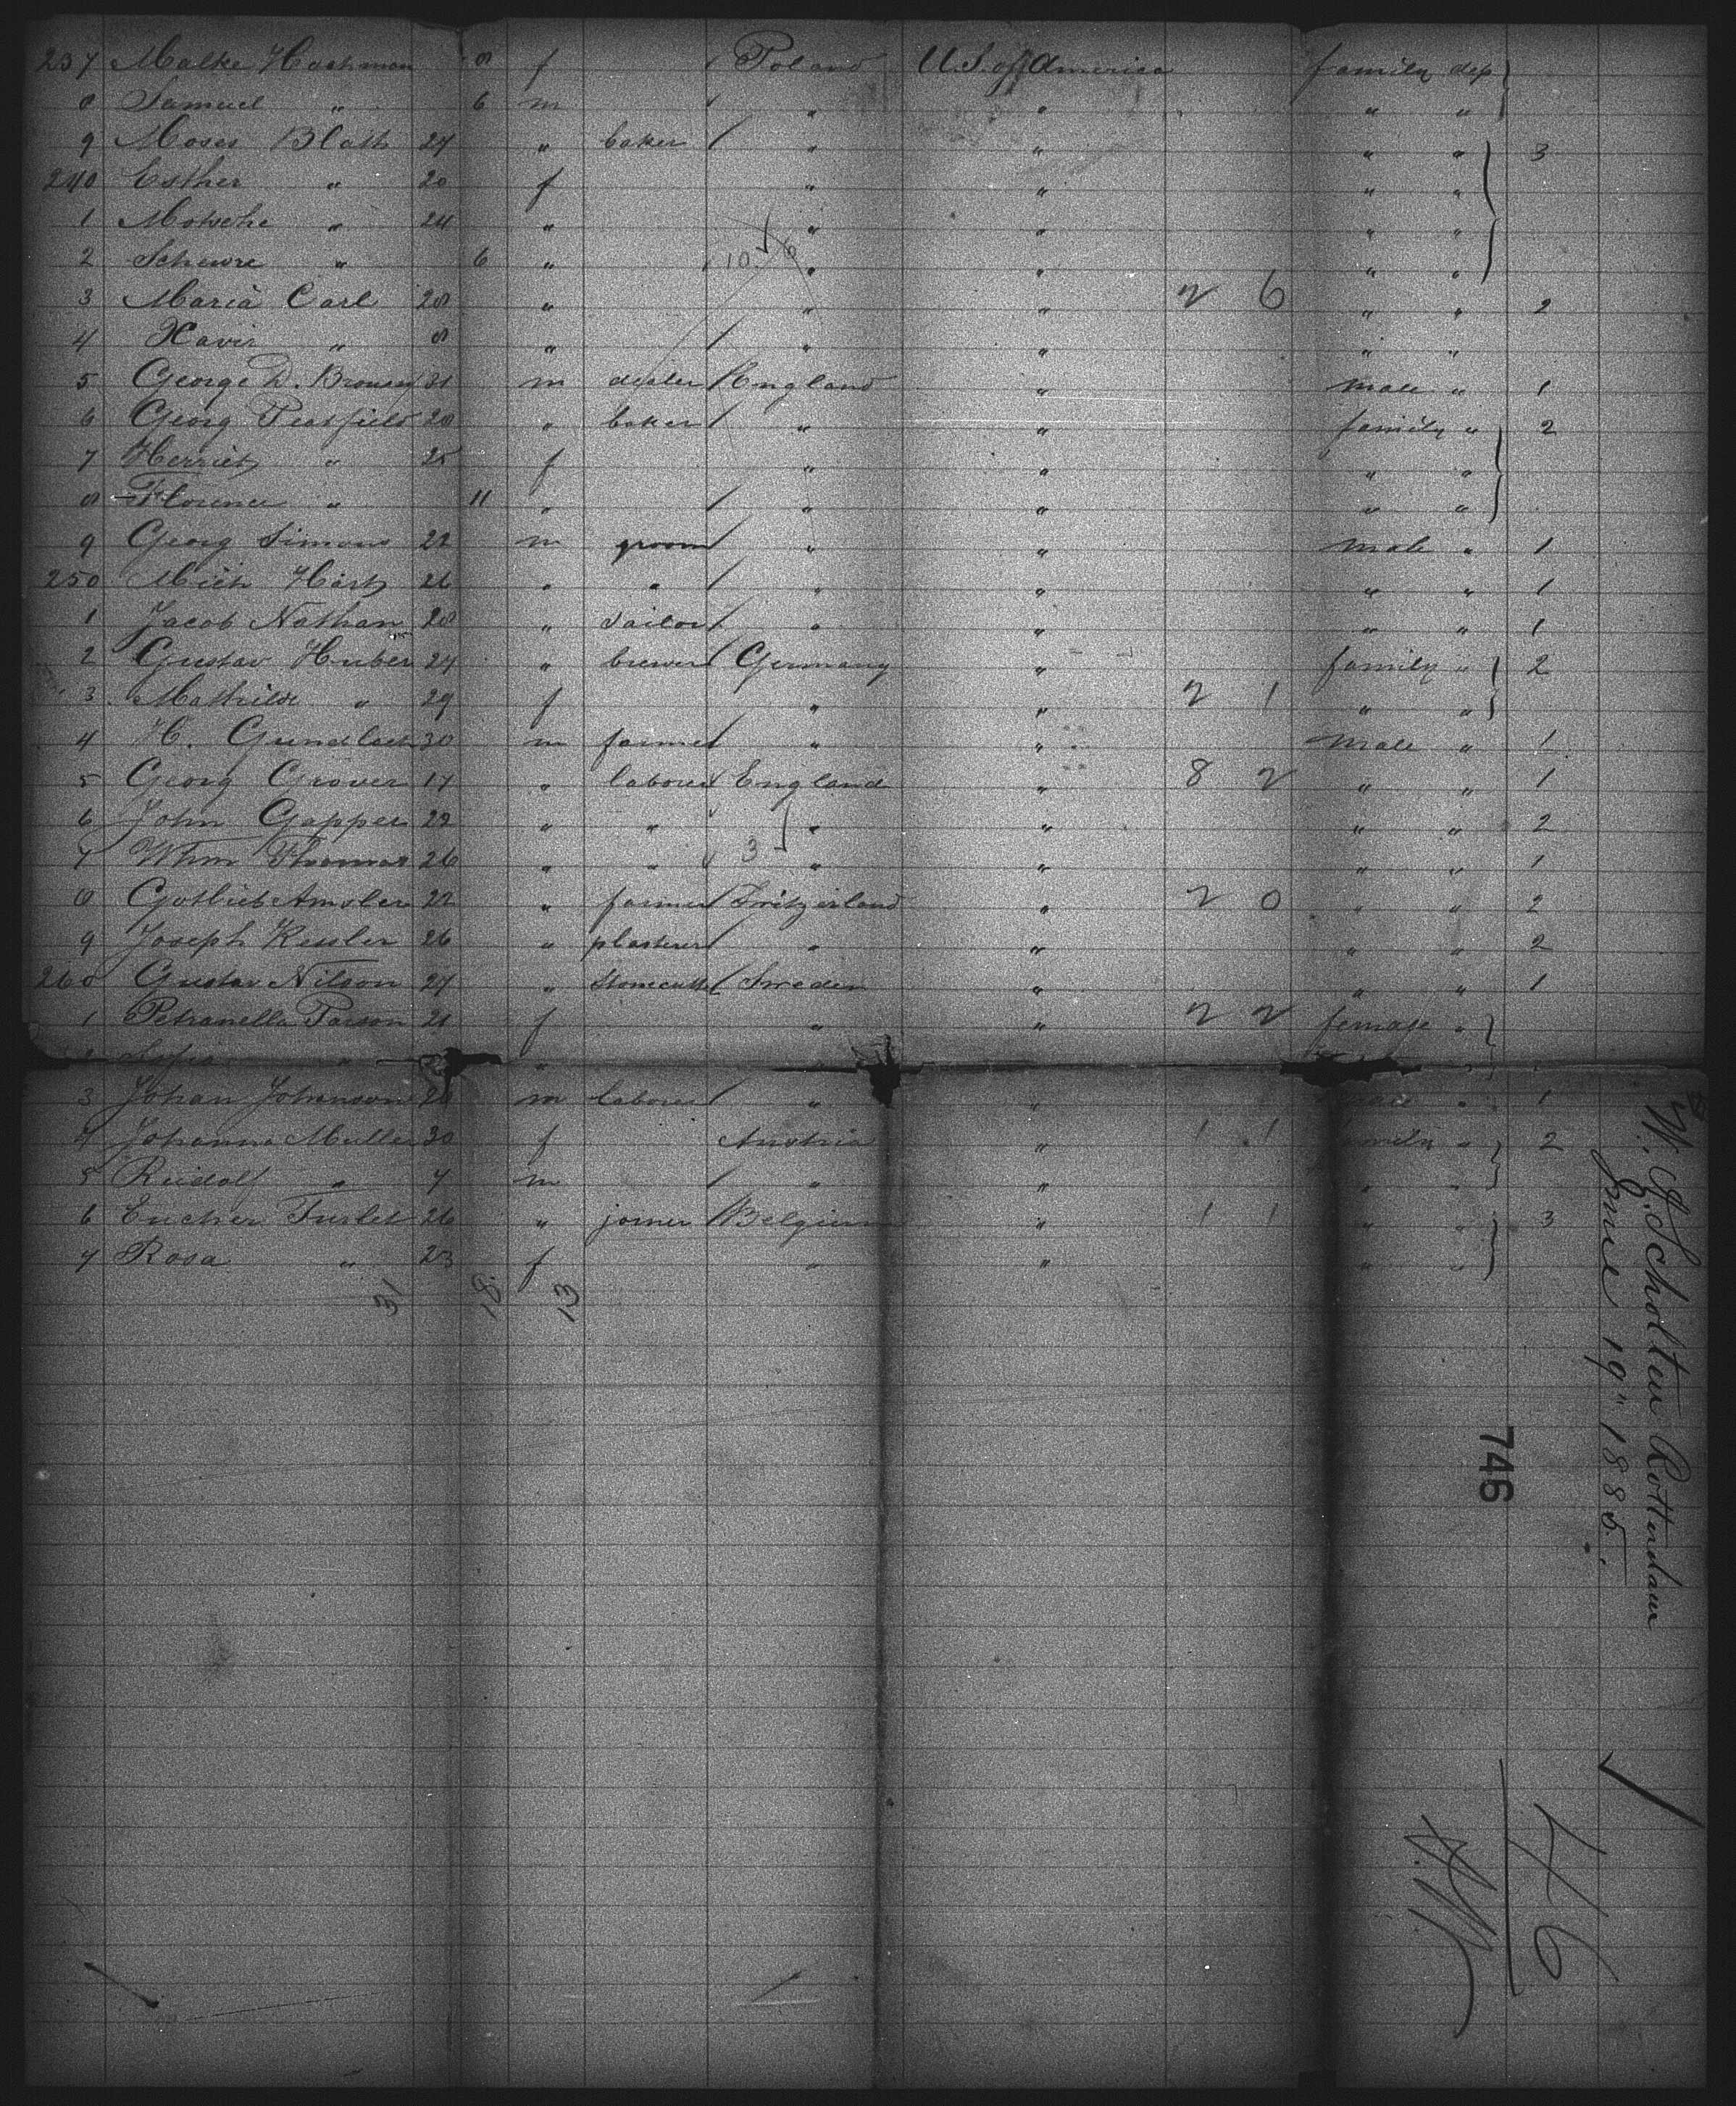 237 Malke Hochman 8 f Poland U.S. of America family dep
8 Samuel " 6 m " " " "
9 Moses Blath 27 " baker " " " " 3
240 Esther " 20 f " " " "
1 Motsche " 24 " " " " "
2 Schewre " 6 " " " " "
10 6
3 Maria Carl 28 " " " 2 6 " " 2
4 Xavir " 8 " " " " "
5 George D. 31 m dealer England " male " 1
6 Georg 28 " baker " " family " 2
7 Herriet " 25 f " " " "
8 Florence " 11 " " " " "
9 Georg Simons 22 m groom " " male " 1
250 Mich Hart 26 " " " " " " 1
1 Jacob Nathan 28 " tailor " " " " 1
2 Gustav Huber 27 " brewer Germany " family " 2
3 Mathilde " 29 f " " 2 1 " "
4 H. Gundlach 30 m farmer " " male " 1
5 Georg Grover 17 " laborer England " 8 2 " " 1
6 John Gapper 22 " " " " " " 2
7 Whm Thomas 26 " " 3 " " " " 1
8 Gotlieb Amsler 22 " farmer Switzerland " 2 0 " " 2
9 Joseph Kessler 26 " plasterer " " " " 2
260 Gustav Nilson 27 " stonecutter Sweden " " " 1
1 Petranella 21 f " " 2 2 female "
2 Sofia " " "
3 Johan Johanson 20 m laborer " " male " 1
4 Johanna Muller 30 f Austria " 1 1 family " 2
5 Rudolf " 7 m " " " "
6 Turlet 26 " joiner Belgium " 1 1 " " 3
7 Rosa " 23 f " " " "
31 18 13
W. A. Scholten Rotterdam
June 19" 1885.
746
46